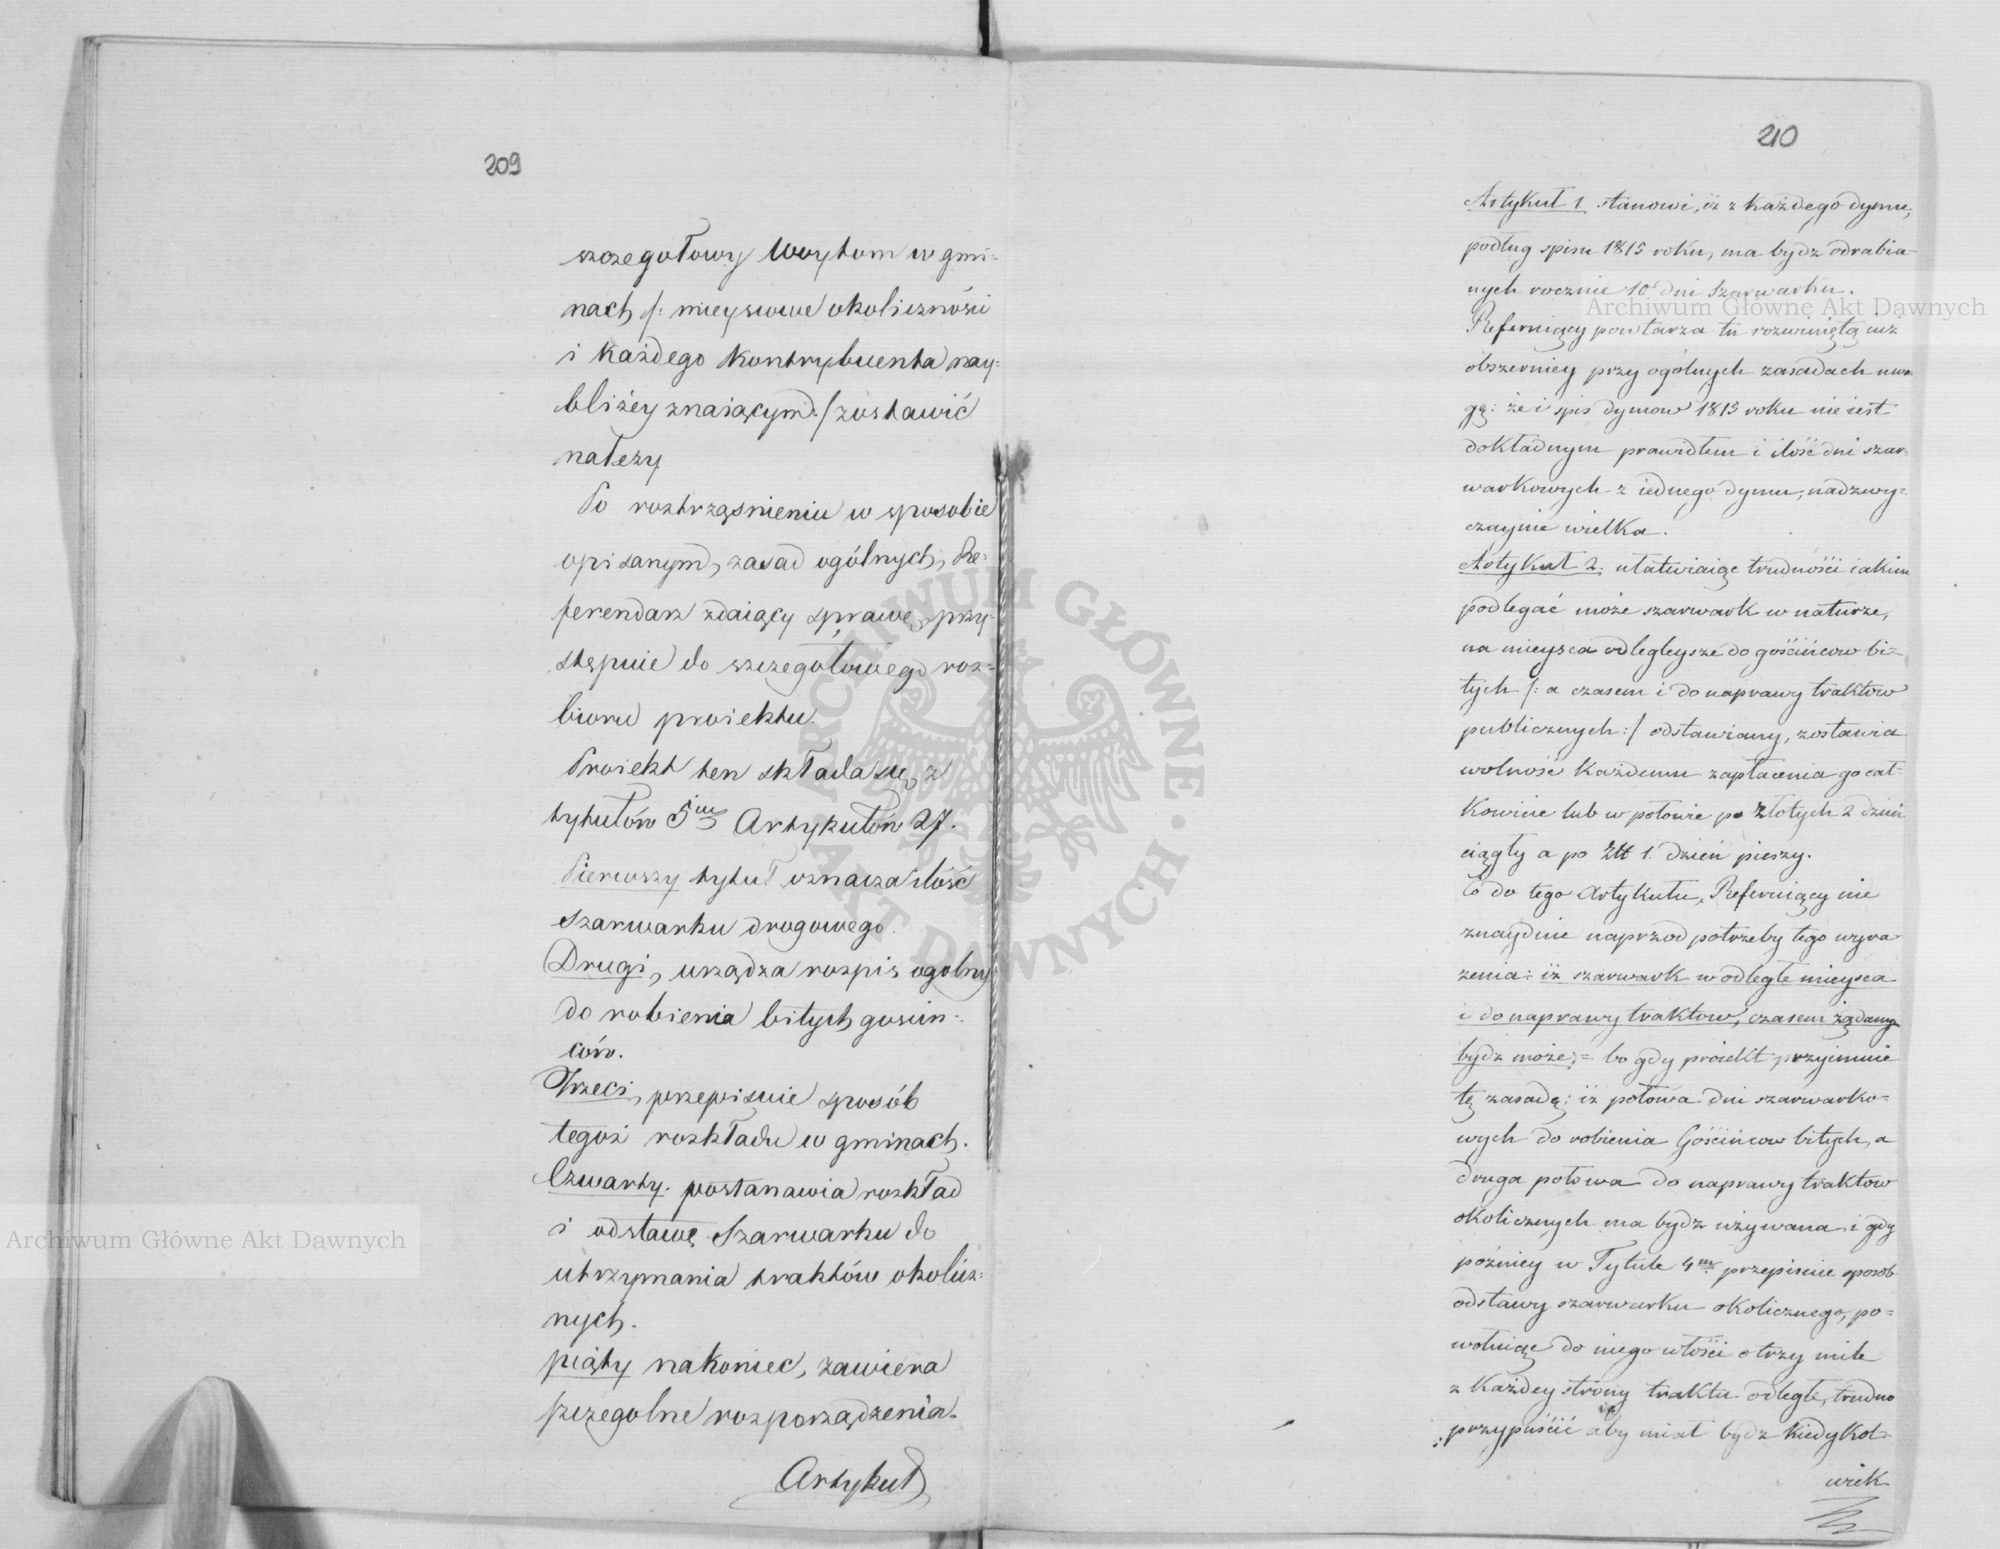 209
szczegołowy Woytom w gmi-
nach /: mieyscowe okoliczności
i każdego kontrybuenta nay-
bliżey znaiącym :/ zostawić
należy
Po roztrząśnieniu w sposobie
opisanym, zasad ogólnych, Re-
ferendarz zdaiący sprawę, przy-
stępuie do szczegołowego roz-
bioru proiektu.
Proiekt ten składa się z
tytułów 5ciu Artykułów 27.
Pierwszy tytuł oznacza ilość
Szarwarku drogowego.
Drugi, urządza rozpis ogolny
do robienia bitych gosciń-
ców.
Trzeci, przepisuie sposób
tegoż rozkładu w gminach.
Czwarty. postanawia rozkład
i odstawę Szarwarku do
utrzymania traktów okolicz-
nych.
piąty nakoniec, zawiera
szczegolne rozporządzenia.
Artykuł
210
Artykuł 1 stanowi, iż z każdego dymu,
podług spisu 1815 roku, ma bydz odrabia-
nych rocznie 10 dni Szarwarku.
Referuiący powtarza tu rozwiniętą iuż
obszerniey przy ogólnych zasadach uwa-
gę: że i spis dymow 1815 roku nie iest
dokładnym prawidłem i ilość dni szar-
warkowych z iednego dymu, nadzwy-
czaynie wielka.
Artykuł 2. ułatwiaiąc trudności iakim
podlegać może szarwark w naturze,
na mieysca odległeysze do gościńcow bi-
tych /: a czasem i do naprawy traktow
publicznych :/ odstawiany, zostawia
wolność każdemu zapłacenia go cał-
kowicie lub w połowie po Złotych 2 dzień
ciągły a po Złt 1. dzień pieszy.
Co do tego Artykułu, Referuiący nie
znayduie naprzod potrzeby tego wyra-
żenia: iż szarwark w odległe mieysca
i do naprawy traktow, czasem żądany
bydz może; = bo gdy proiekt przyimuie
tę zasadę; iż połowa dni szarwarko-
wych do robienia Gościńcow bitych, a
druga połowa do naprawy traktow
okolicznych ma bydz używana i gdy
pozniey w Tytule 4m przepisuie sposob
odstawy szarwarku okolicznego, po-
wołuiąc do niego włości o trzy mile
z każdey strony traktu odległe, trudno
przypuścić aby miał bydz kiedykol-
wiek
Archiwum Główne Akt Dawnych
Archiwum Główne Akt Dawnych
ARCHIWUM GŁÓWNE AKT DAWNYCH